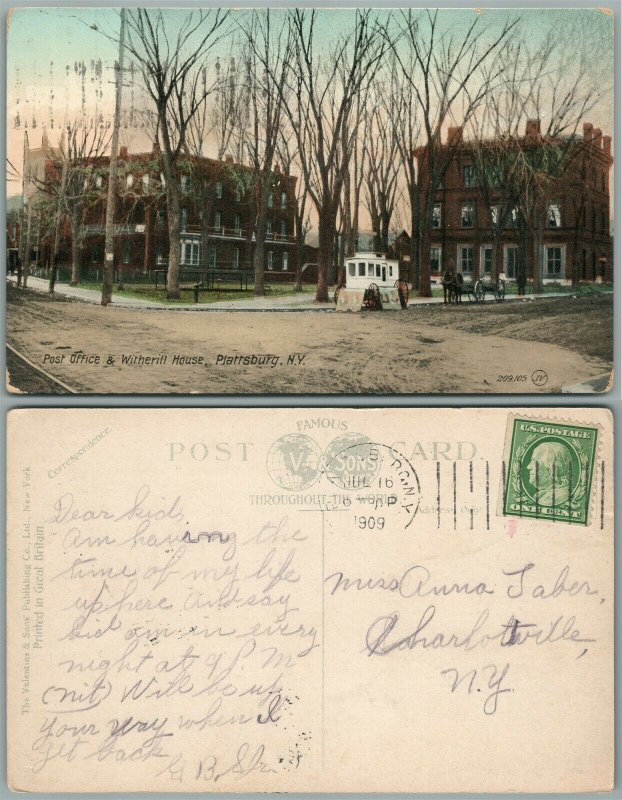 Post Office & Witherill House, Plattsburg, N.Y.
209,105 IV
Correspondence.
POST CARD.
FAMOUS
V & SONS
THROUGHOUT THE WORLD
Address Only
JUL 16
6 PM
1909
N.Y.
U.S. POSTAGE
ONE CENT
The Valentine & Sons' Publishing Co., Ltd., New York
Printed in Great Britain.
Dear kid,
Am having the
time of my life
up here and say
kid am in every
night at 9 P. M
(nit) Will be up
your way when I
get back
G B
Miss Anna Taber,
Charlottville,
N.Y.